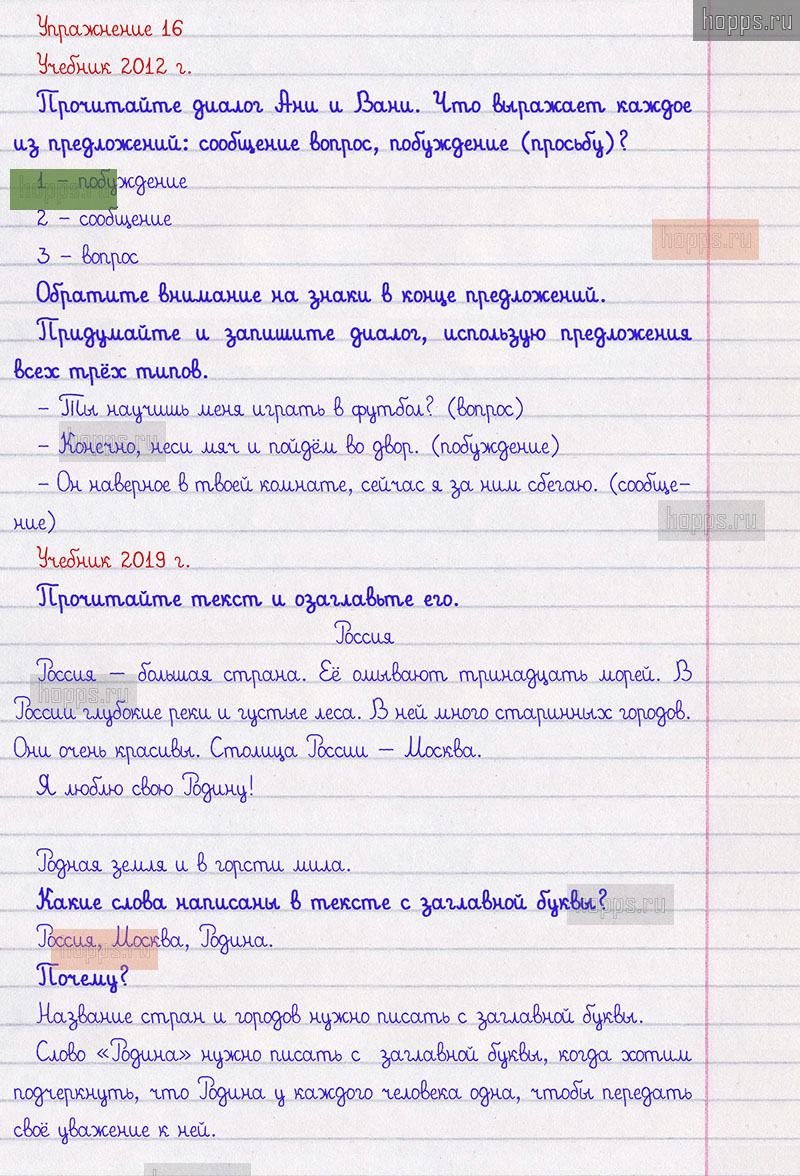 hopps.ru
Упражнение 16
Учебник 2012 г.
Прочитайте диалог Ани и Вани. Что выражает каждое
из предложений: сообщение вопрос, побуждение (просьбу)?
1 – побуждение
hopps.ru
2 – сообщение
hopps.ru
3 – вопрос
Обратите внимание на знаки в конце предложений.
Придумайте и запишите диалог, использую предложения
всех трёх типов.
– Ты научишь меня играть в футбол? (вопрос)
– Конечно, неси мяч и пойдём во двор. (побуждение)
hopps.ru
– Он наверное в твоей комнате, сейчас я за ним сбегаю. (сообще-
ние)
hopps.ru
Учебник 2019 г.
Прочитайте текст и озаглавьте его.
Россия
Россия – большая страна. Её омывают тринадцать морей. В
hopps.ru
России глубокие реки и густые леса. В ней много старинных городов.
Они очень красивы. Столица России – Москва.
Я люблю свою Родину!
Родная земля и в горсти мила.
Какие слова написаны в тексте с заглавной буквы?
hopps.ru
Россия, Москва, Родина.
hopps.ru
Почему?
Название стран и городов нужно писать с заглавной буквы.
Слово «Родина» нужно писать с заглавной буквы, когда хотим
подчеркнуть, что Родина у каждого человека одна, чтобы передать
своё уважение к ней.